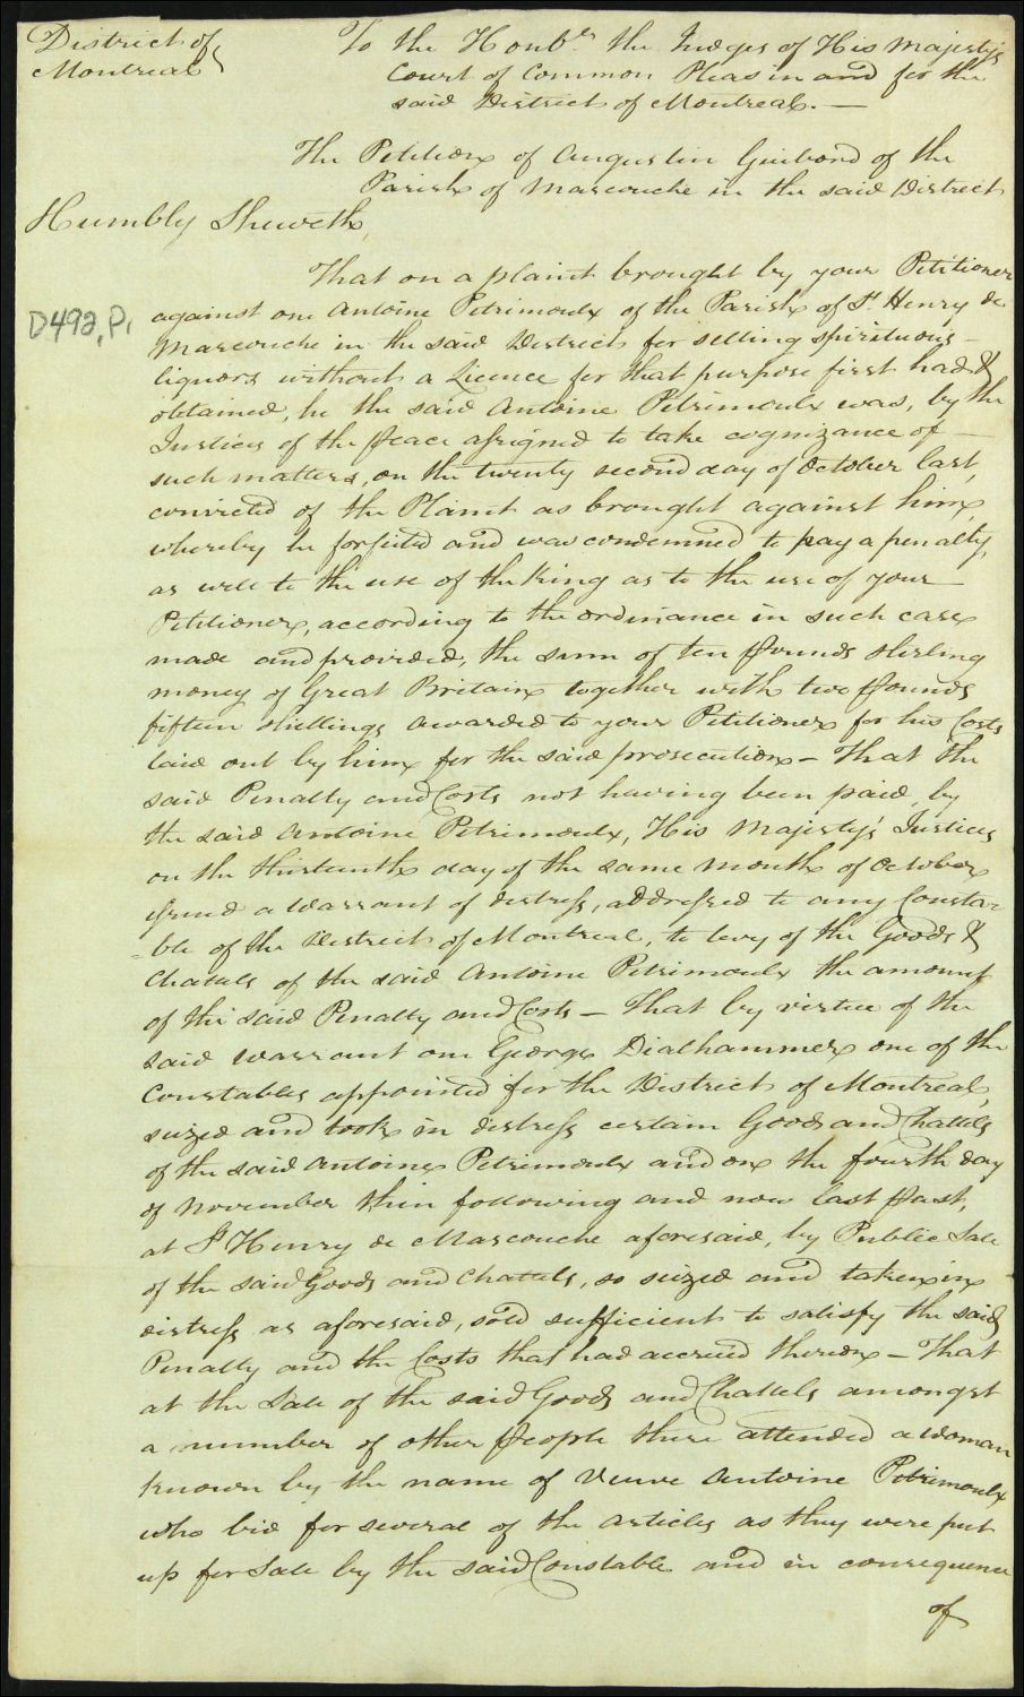 District of
Montreal
To the Honb.le the Judges of His Majesty's
Court of Common Pleas in and for the
said District of Montreal. —
The Petition of Augustin Guibord of the
Parish of Mascouche in the said District
Humbly Sheweth,
That on a plaint brought by your Petitioner
against one Antoine Petrimoulx of the Parish of St Henry de
Mascouche in the said District for selling spirituous —
liquors without a Licence for that purpose first had &
obtained, he the said Antoine Petrimoulx was, by the
Justices of the Peace assigned to take cognizance of —
such matters, on the twenty second day of October last,
convicted of the Plaint as brought against him,
whereby he forfeited and was condemned to pay a penalty,
as well to the use of the King as to the use of your —
Petitioner, according to the ordinance in such case
made and provided, the sum of ten Pounds sterling
money of Great Britain together with two Pounds
fifteen shillings awarded to your Petitioner for his Costs
laid out by him for the said prosecution – That the
said Penalty and Costs not having been paid, by
the said Antoine Petrimoulx, His Majesty's Justices
on the thirteenth day of the same month of October
issued a Warrant of distress, addressed to any Consta=
=ble of the District of Montreal, to levy of the Goods &
Chattels of the said Antoine Petrimoulx the amount
of the said Penalty and Costs – That by virtue of the
said warrant one George Dialhammer one of the
Constables appointed for the District of Montreal,
seized and took in distress certain Goods and Chattels
of the said Antoine Petrimoulx and on the fourth day
of November then following and now last Past,
at St Henry de Mascouche aforesaid, by Public Sale
of the said Goods and Chattels, so seized and taken in
distress as aforesaid, sold sufficient to satisfy the said
Penalty and the Costs that had accrued thereon – That
at the Sale of the said Goods and Chattels amongst
a number of other People there attended a Woman
known by the name of Veuve Antoine Petrimoulx
who bid for several of the Articles as they were put
up for Sale by the said Constable and in consequence
of
D492, P1